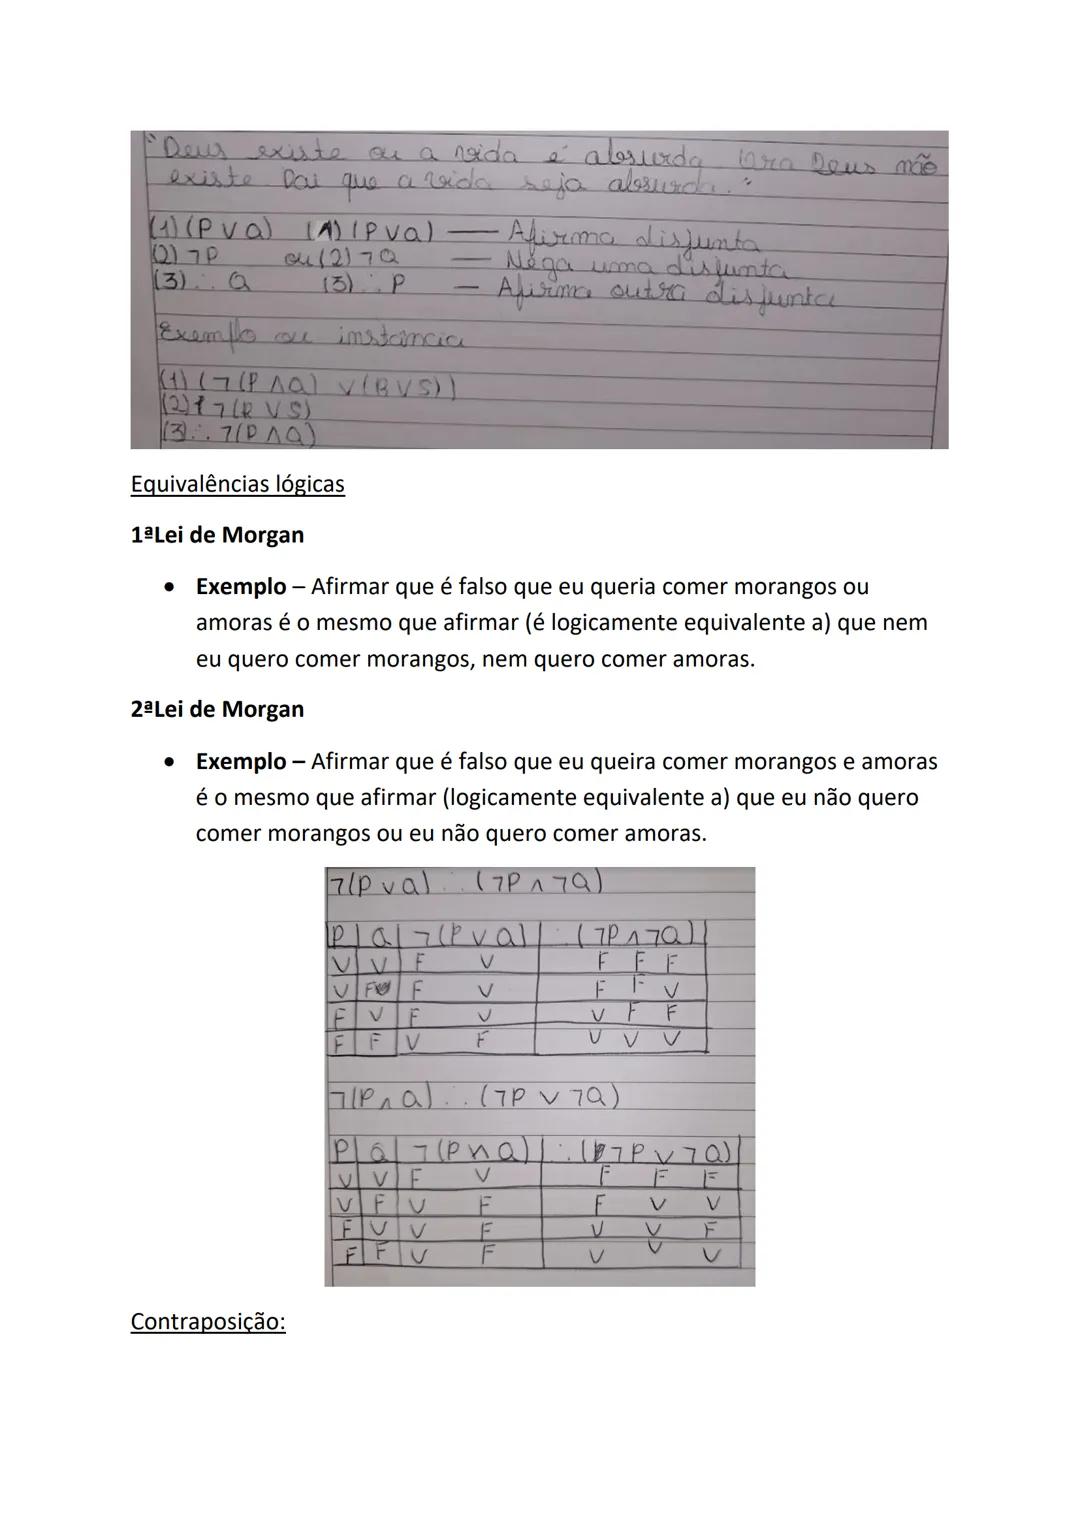 "Deus existe ou a vida é absurda. Ora Deus não
existe. Daí que a vida seja absurda."
(1) (P ∨ Q) (1) (P ∨ Q) — Afirma disjunta
(2) ¬P ou (2) ¬Q — Nega uma disjunta
(3) ∴ Q (3) ∴ P — Afirma outra disjunta
Exemplo ou instância
(1) (¬(P ∧ Q) ∨ (R ∨ S))
(2) ¬(R ∨ S)
(3) ∴ ¬(P ∧ Q)
Equivalências lógicas
1ªLei de Morgan
• Exemplo – Afirmar que é falso que eu queria comer morangos ou
amoras é o mesmo que afirmar (é logicamente equivalente a) que nem
eu quero comer morangos, nem quero comer amoras.
2ªLei de Morgan
• Exemplo – Afirmar que é falso que eu queira comer morangos e amoras
é o mesmo que afirmar (logicamente equivalente a) que eu não quero
comer morangos ou eu não quero comer amoras.
¬(P ∨ Q) ∴ (¬P ∧ ¬Q)
P Q ¬(P ∨ Q) ∴ (¬P ∧ ¬Q)
V V F V F F F
V F F V F F V
F V F V V F F
F F V F V V V
¬(P ∧ Q) ∴ (¬P ∨ ¬Q)
P Q ¬(P ∧ Q) ∴ (¬P ∨ ¬Q)
V V F V F F F
V F V F F V V
F V V F V V F
F F V F V V V
Contraposição: